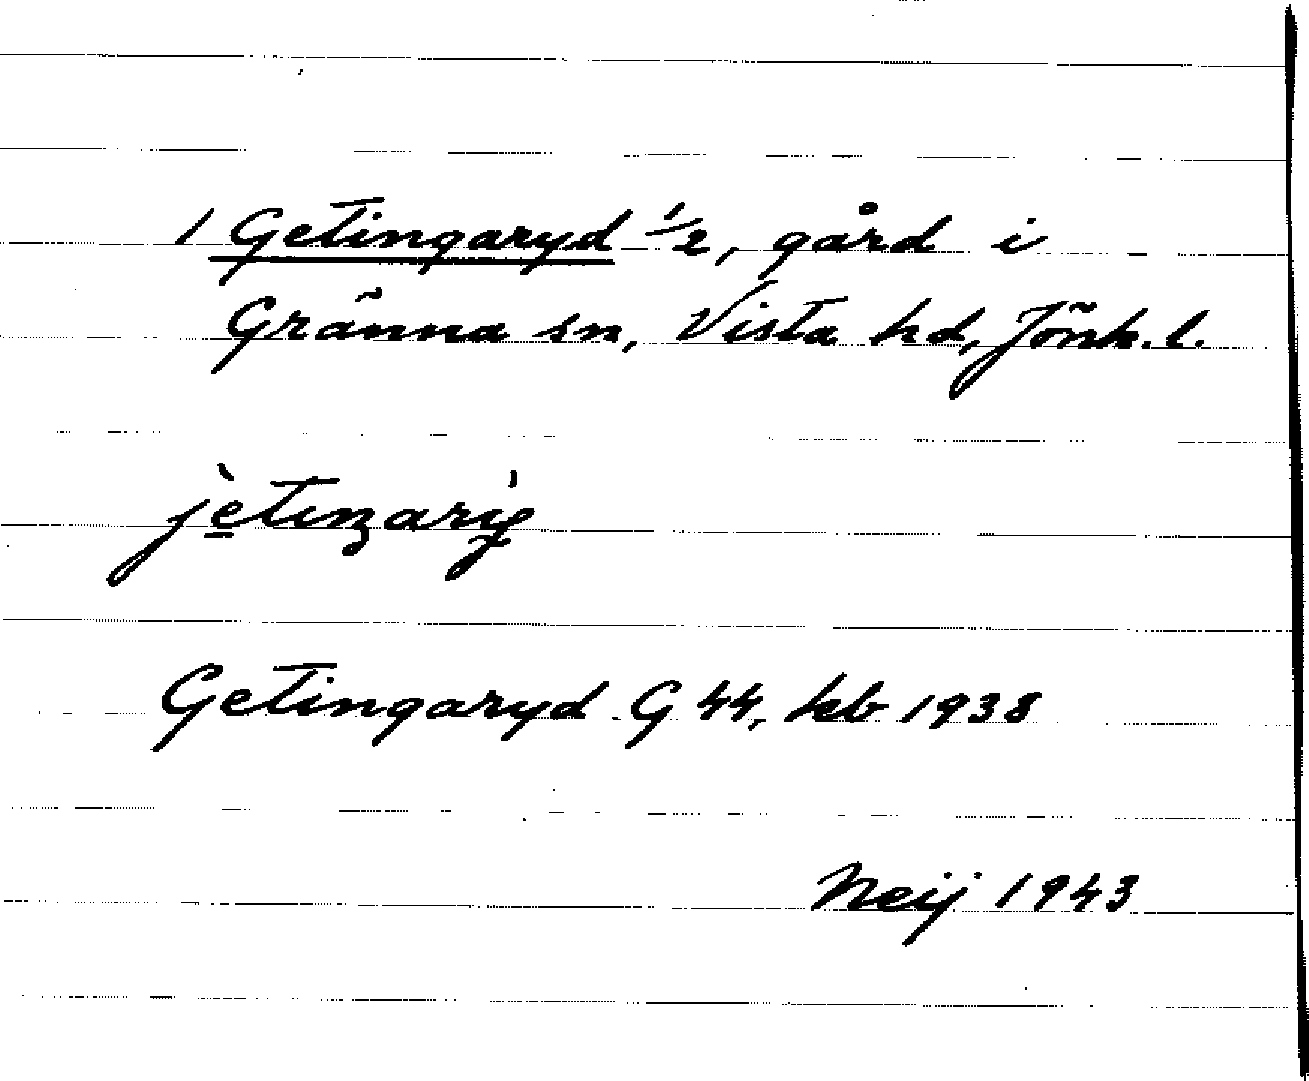 1 Getingaryd 1/2, gård i
Gränna sn, Vista hd, Jönk. l.
Getingaryd G 44, kb 1938
Neij 1943